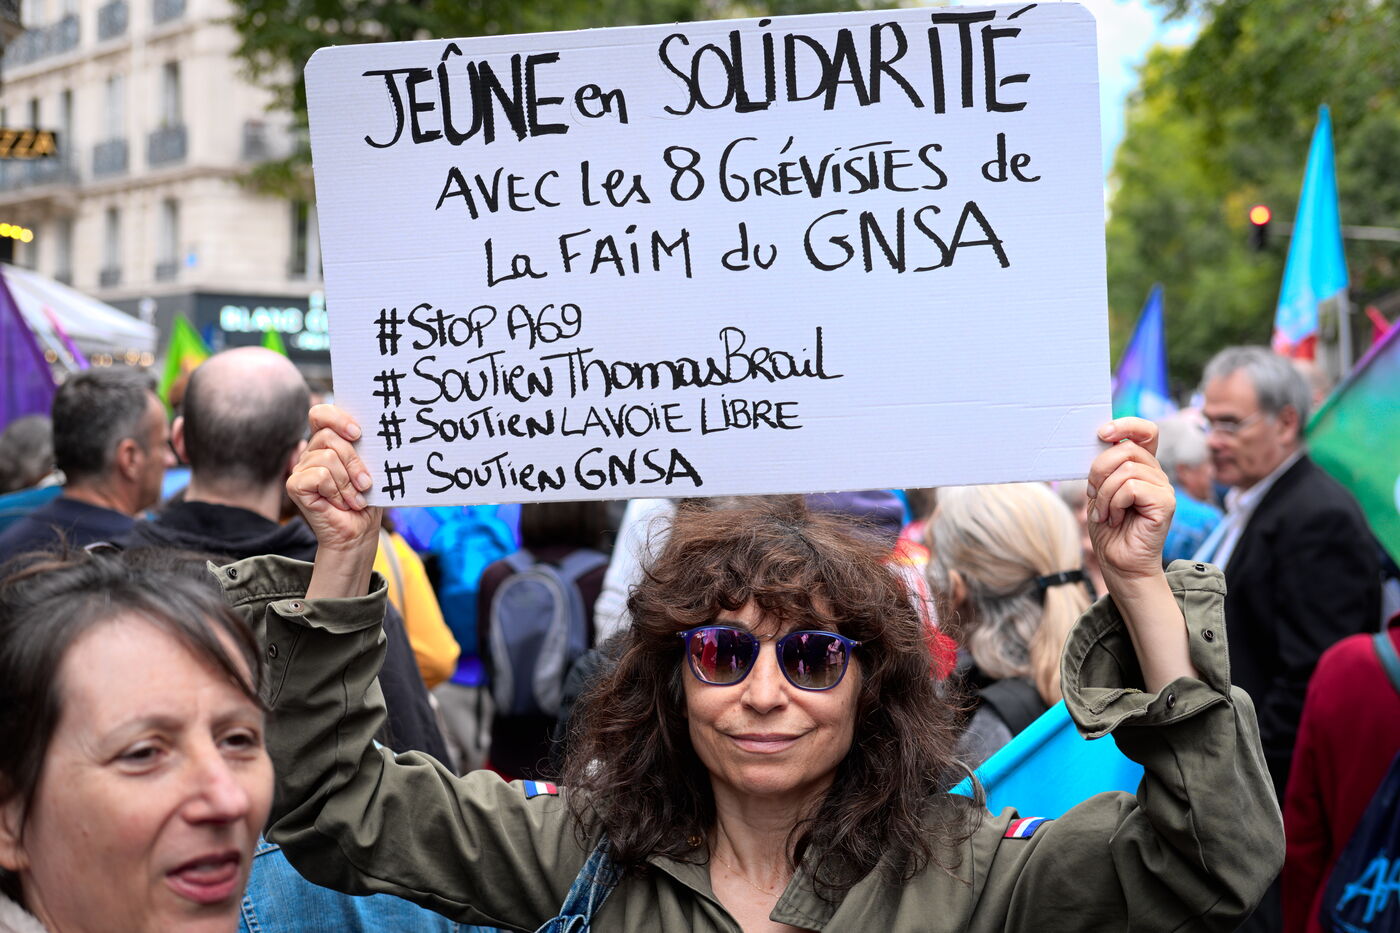 JEÛNE en SOLIDARITÉ
AVEC les 8 GRÉVISTES de
La FAIM du GNSA
#STOP A69
#SOUTIEN THOMAS BRAIL
#SOUTIEN LAVOIE LIBRE
# SOUTIEN GNSA